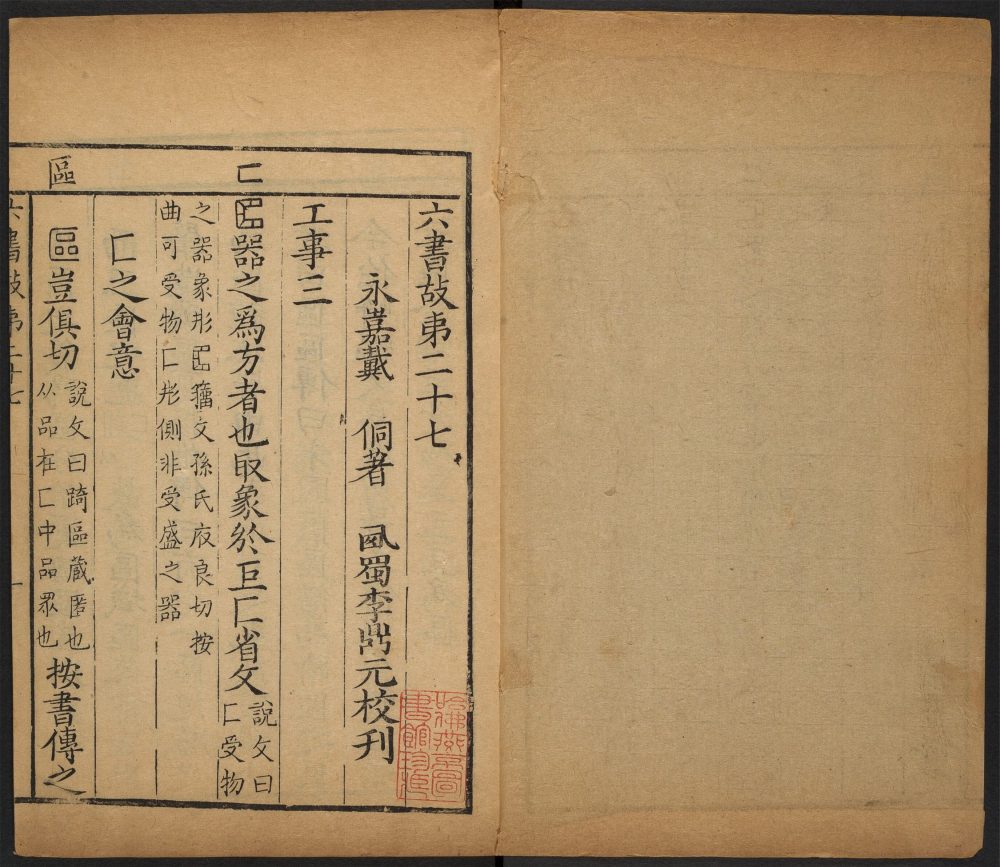 匚
區
六書故弟二十七
永嘉戴 侗著 西蜀李鼎元校刊
工事三
器之爲方者也取象於巨匚省文說文曰匚受物
之器象形籀文孫氏府良切按
曲可受物匚形側非受盛之器
匚之會意
區豈俱切說文曰踦區藏匿也从品在匚中品眾也按書傳之
六書故弟二十七 一
哈佛燕京圖書館珍藏